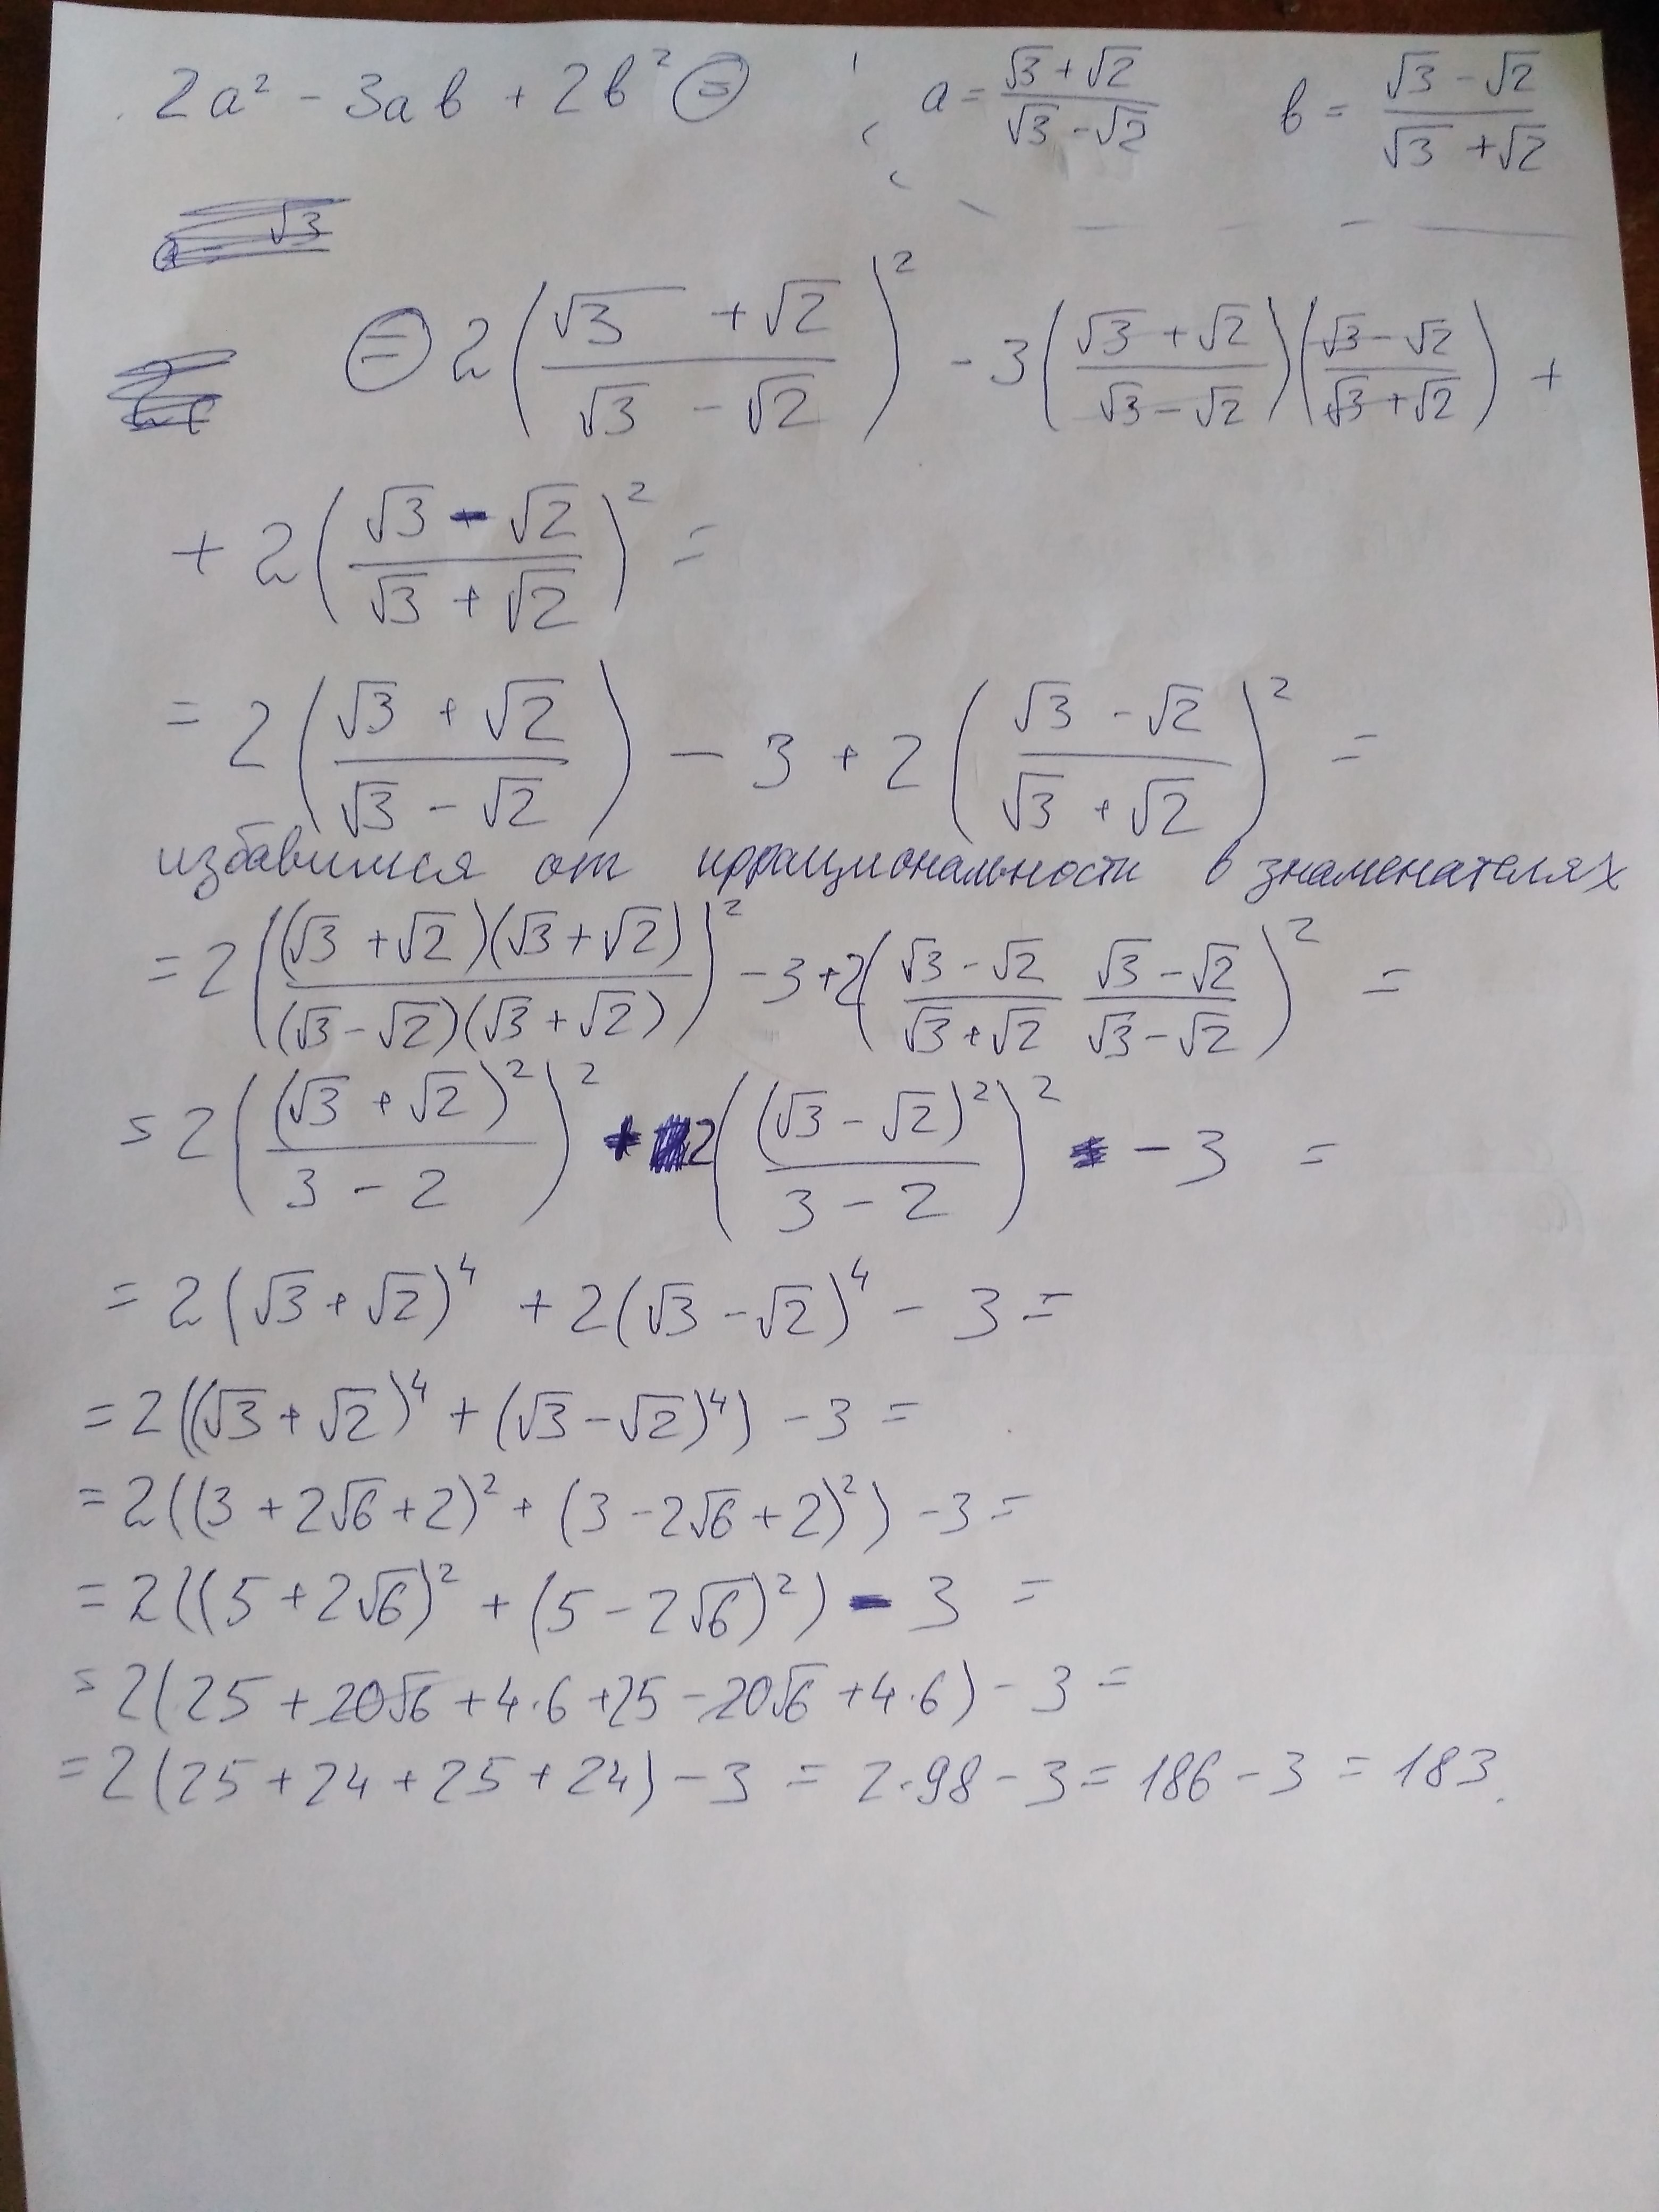 2a² - 3ab + 2b² ⊜ a = (√3 + √2)/(√3 - √2) b = (√3 - √2)/(√3 + √2)
⊜ 2((√3 + √2)/(√3 - √2))² - 3((√3 + √2)/(√3 - √2))((√3 - √2)/(√3 + √2)) +
+ 2((√3 - √2)/(√3 + √2))² =
= 2((√3 + √2)/(√3 - √2)) - 3 + 2((√3 - √2)/(√3 + √2))² =
избавимся от иррациональности в знаменателях
= 2(((√3 + √2)(√3 + √2))/((√3 - √2)(√3 + √2)))² - 3 + 2((√3 - √2)/(√3 + √2) (√3 - √2)/(√3 - √2))² =
= 2((√3 + √2)²/(3 - 2))² + 2((√3 - √2)²/(3 - 2))² - 3 =
= 2(√3 + √2)⁴ + 2(√3 - √2)⁴ - 3 =
= 2((√3 + √2)⁴ + (√3 - √2)⁴) - 3 =
= 2((3 + 2√6 + 2)² + (3 - 2√6 + 2)²) - 3 =
= 2((5 + 2√6)² + (5 - 2√6)²) - 3 =
= 2(25 + 20√6 + 4·6 + 25 - 20√6 + 4·6) - 3 =
= 2(25 + 24 + 25 + 24) - 3 = 2·98 - 3 = 186 - 3 = 183.